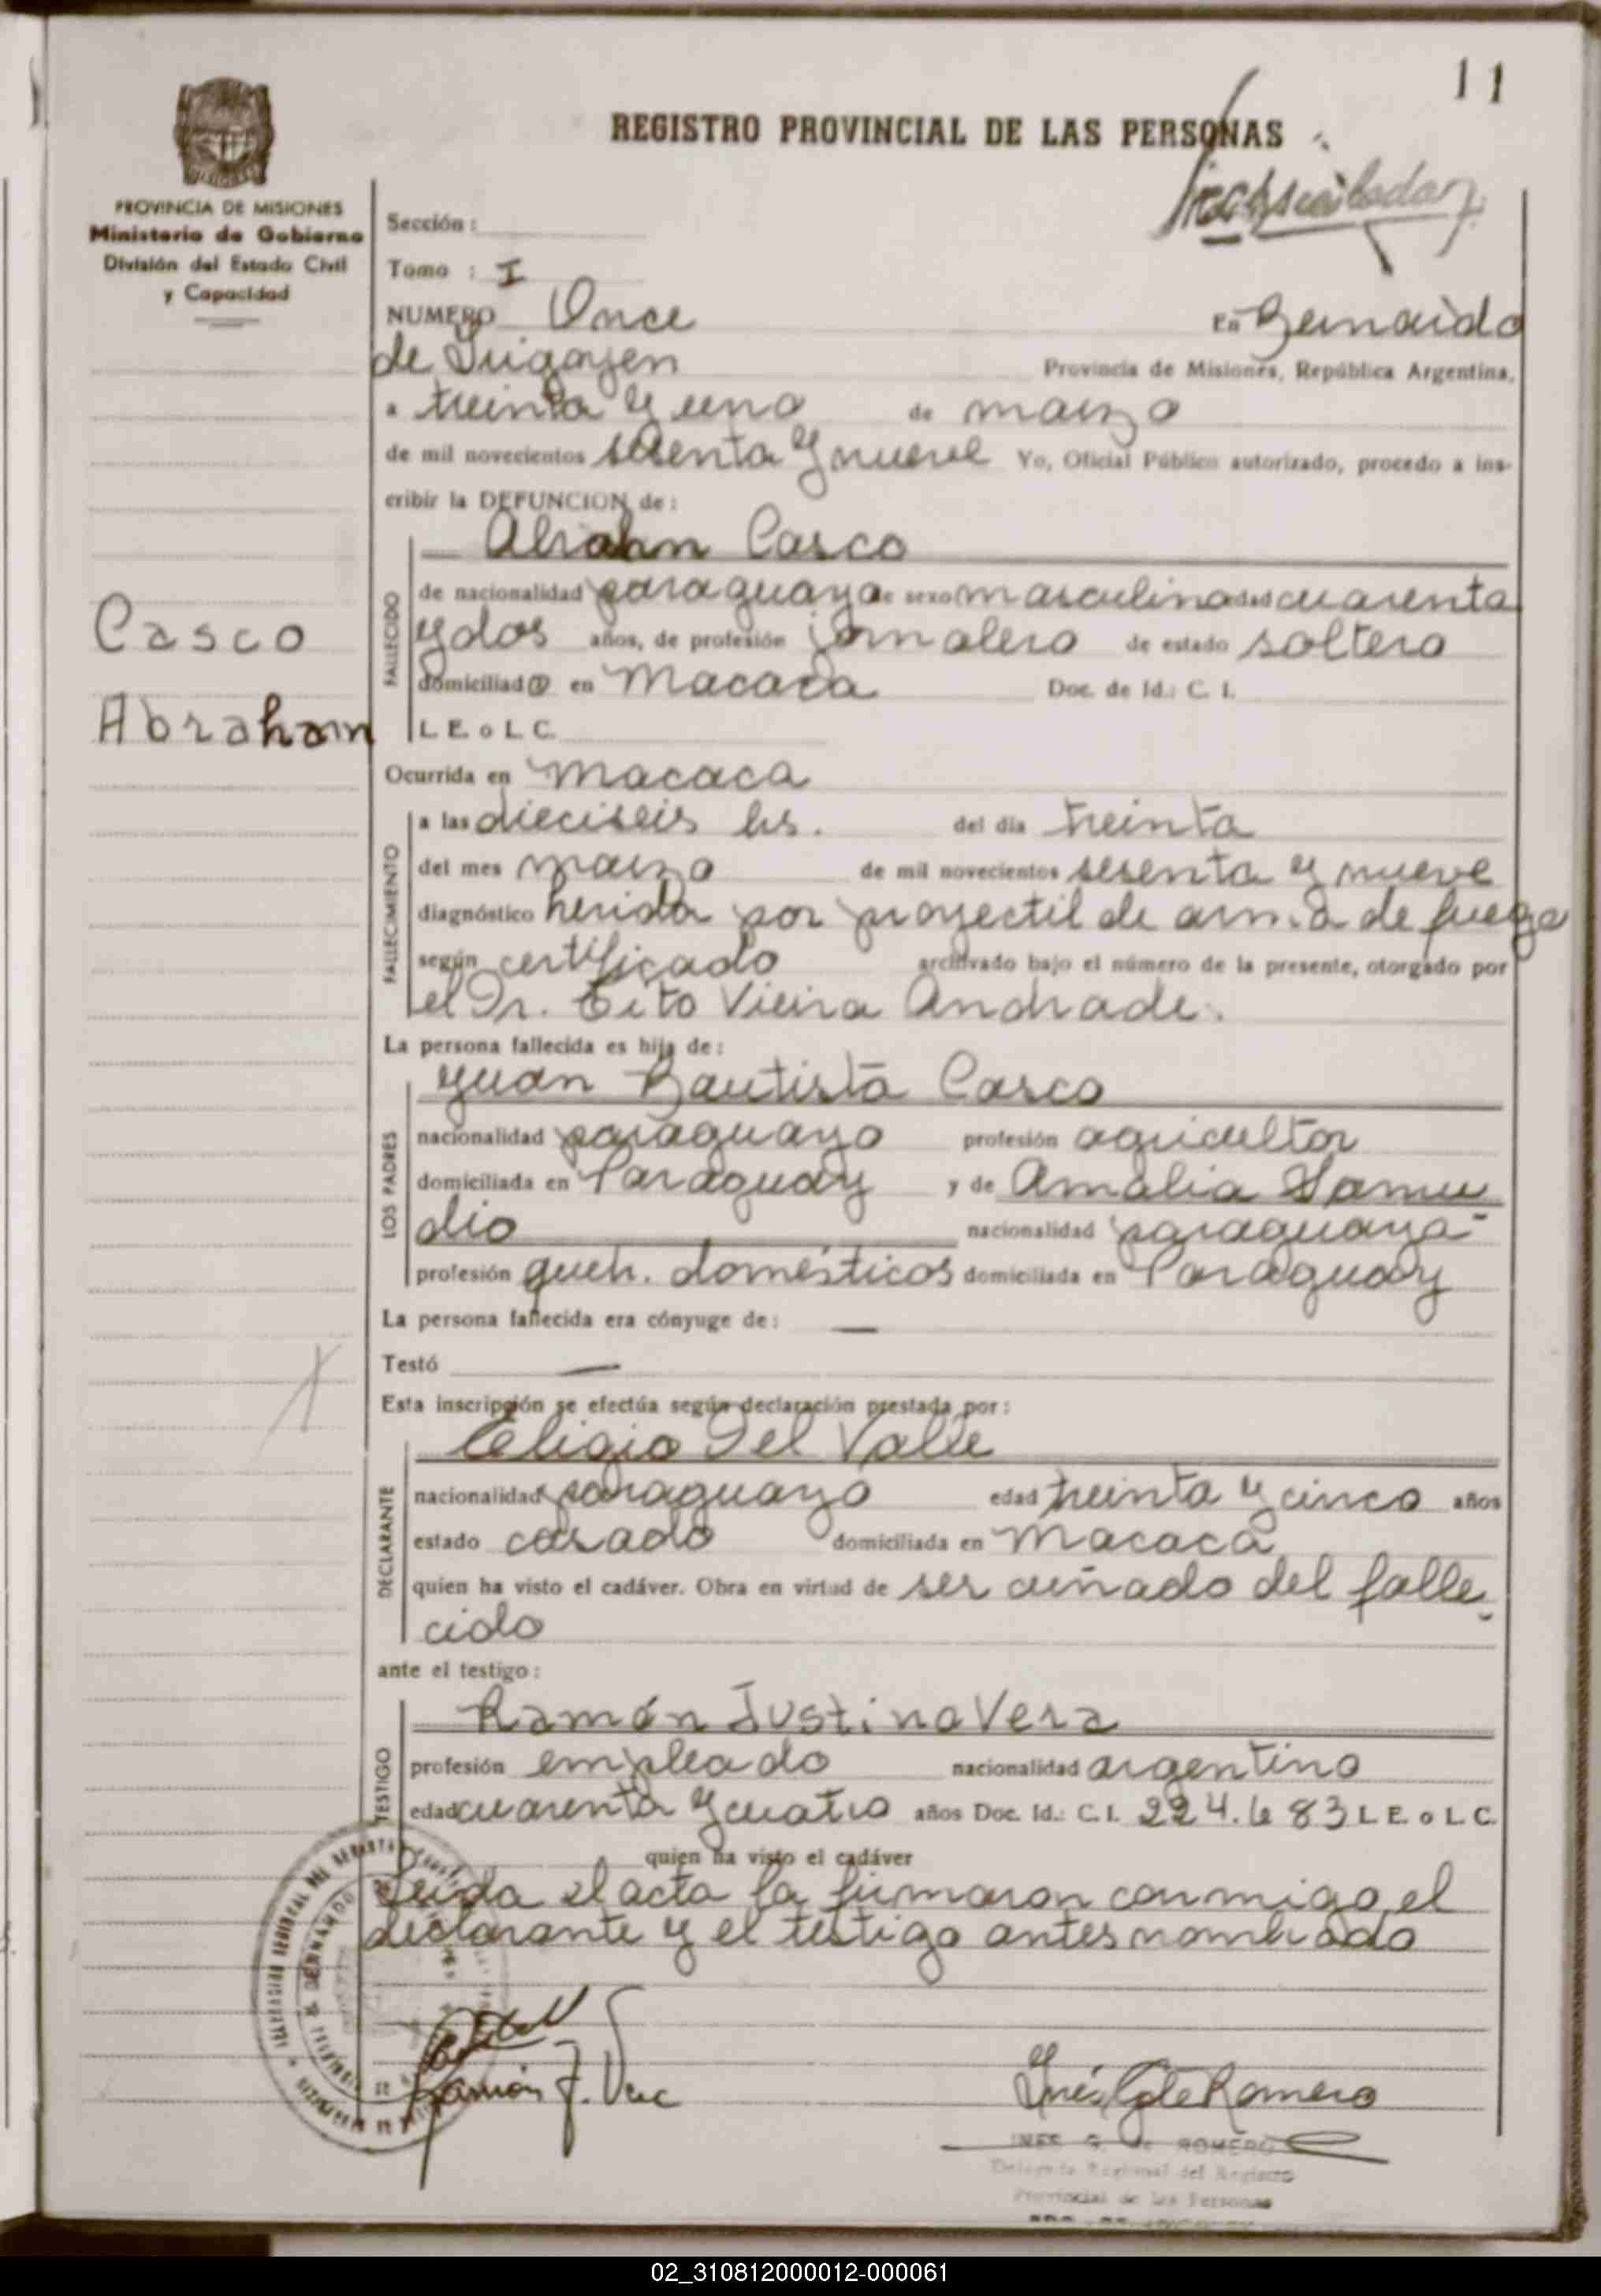 11
REGISTRO PROVINCIAL DE LAS PERSONAS
PROVINCIA DE MISIONES
Ministerio de Gobierno
División del Estado Civil
y Capacidad
Sección :
Tomo : I
NUMERO Once En Bernardo
de Irigoyen Provincia de Misiones, República Argentina,
a treinta y uno de marzo
de mil novecientos sesenta y nueve Yo, Oficial Público autorizado, procedo a ins-
cribir la DEFUNCION de :
Casco
Abraham
FALLECIDO
Abrahn Casco
de nacionalidad paraguaya de sexo masculino edad cuarenta
y dos años, de profesión jornalero de estado soltero
domiciliado en Macaca Doc. de Id.: C. I.
L E o L C.
Ocurrida en Macaca
FALLECIMIENTO
a las dieciseis hs. del día treinta
del mes marzo de mil novecientos sesenta y nueve
diagnóstico herida por proyectil de arma de fuego
según certificado archivado bajo el número de la presente, otorgado por
el Dr. Tito Vieira Andrade.
La persona fallecida es hija de :
LOS PADRES
Juan Bautista Casco
nacionalidad paraguayo profesión agricultor
domiciliada en Paraguay y de Amalia Samu
dio nacionalidad paraguaya
profesión queh. domésticos domiciliada en Paraguay
La persona fallecida era cónyuge de : —
Testó —
Esta inscripción se efectúa según declaración prestada por :
DECLARANTE
Del Valle
nacionalidad paraguayo edad treinta y cinco años
estado casado domiciliada en Macaca
quien ha visto el cadáver. Obra en virtud de ser cuñado del falle-
cido
ante el testigo :
TESTIGO
Ramón Justino Vera
profesión empleado nacionalidad argentino
edad cuarenta y cuatro años Doc. Id.: C. I. 224.683 L E o L C.
quien ha visto el cadáver
Leida el acta la firmaron conmigo el
declarante y el testigo antes nombrado
Ramón J. Vera
Inés G de Romero
INES G. de ROMERO
Delegada Regional del Registro
Provincial de las Personas
02_310812000012-000061